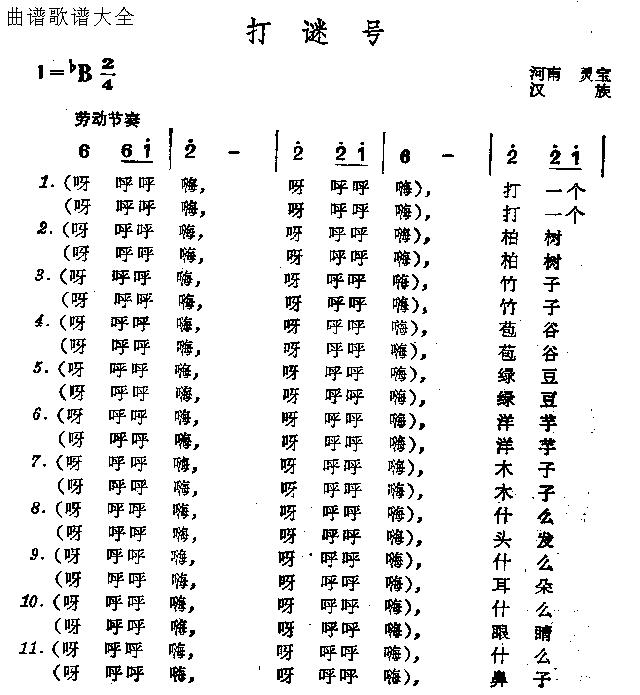 曲谱歌谱大全
打谜号
1=♭B 2/4
河南 灵宝
汉族
劳动节奏
6 6 1̇ | 2̇ - | 2̇ 2̇ 1̇ | 6 - | 2̇ 2̇ 1̇ |
1.(呀 呼呼 嗨, 呀 呼呼 嗨), 打 一个
(呀 呼呼 嗨, 呀 呼呼 嗨), 打 一个
2.(呀 呼呼 嗨, 呀 呼呼 嗨), 柏 树
(呀 呼呼 嗨, 呀 呼呼 嗨), 柏 树
3.(呀 呼呼 嗨, 呀 呼呼 嗨), 竹 子
(呀 呼呼 嗨, 呀 呼呼 嗨), 竹 子
4.(呀 呼呼 嗨, 呀 呼呼 嗨), 苞 谷
(呀 呼呼 嗨, 呀 呼呼 嗨), 苞 谷
5.(呀 呼呼 嗨, 呀 呼呼 嗨), 绿 豆
(呀 呼呼 嗨, 呀 呼呼 嗨), 绿 豆
6.(呀 呼呼 嗨, 呀 呼呼 嗨), 洋 芋
(呀 呼呼 嗨, 呀 呼呼 嗨), 洋 芋
7.(呀 呼呼 嗨, 呀 呼呼 嗨), 木 子
(呀 呼呼 嗨, 呀 呼呼 嗨), 木 子
8.(呀 呼呼 嗨, 呀 呼呼 嗨), 什 么
(呀 呼呼 嗨, 呀 呼呼 嗨), 头 发
9.(呀 呼呼 嗨, 呀 呼呼 嗨), 什 么
(呀 呼呼 嗨, 呀 呼呼 嗨), 耳 朵
10.(呀 呼呼 嗨, 呀 呼呼 嗨), 什 么
(呀 呼呼 嗨, 呀 呼呼 嗨), 眼 睛
11.(呀 呼呼 嗨, 呀 呼呼 嗨), 什 么
(呀 呼呼 嗨, 呀 呼呼 嗨), 鼻 子